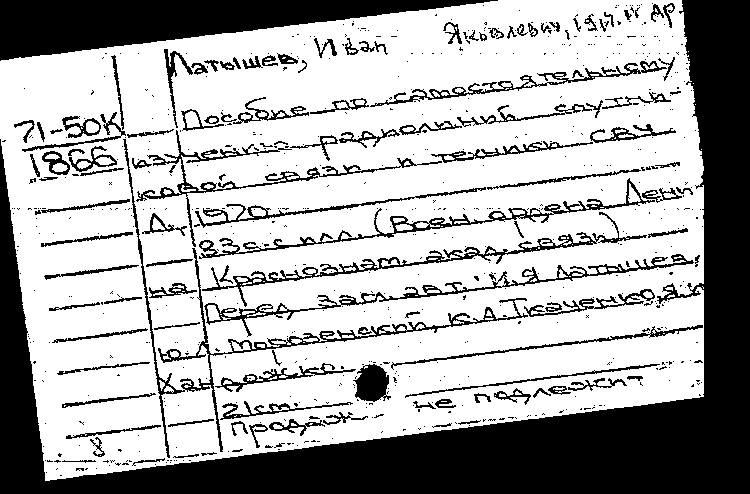 Латышев, Иван Яковлевич, 1917. и др.
71-50К
1866
Пособие по самостоятельному
изучению радиолиний спутни-
ковой связи и техники СВЧ
Л., 1970.
83 с. с илл. (Воен. ордена Лени
на Краснознам. акад. связи)
Перед загл. авт.: И.Я Латышев,
Ю.Л. Мороzенский, К.А. Ткаченко, Я.И
Хандожко.
21 см.
продаж не подлежит
8.